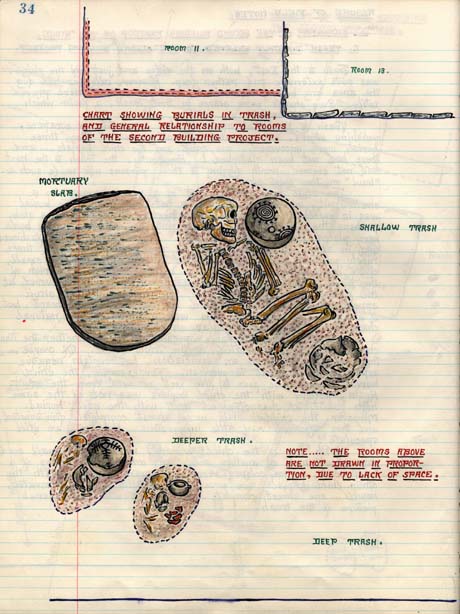 34
ROOM 11.
ROOM 13.
CHART SHOWING BURIALS IN TRASH,
AND GENERAL RELATIONSHIP TO ROOMS
OF THE SECOND BUILDING PROJECT.
MORTUARY
SLAB.
SHALLOW TRASH
DEEPER TRASH.
NOTE..... THE ROOMS ABOVE
ARE NOT DRAWN IN PROPOR-
TION, DUE TO LACK OF SPACE.
DEEP TRASH.